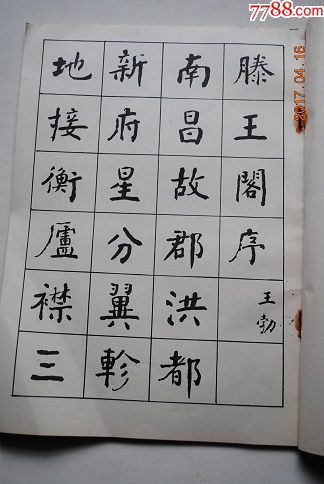 滕王閣序
王勃
南昌故郡洪都
新府星分翼軫
地接衡廬襟三
7788.com
2017.04.16